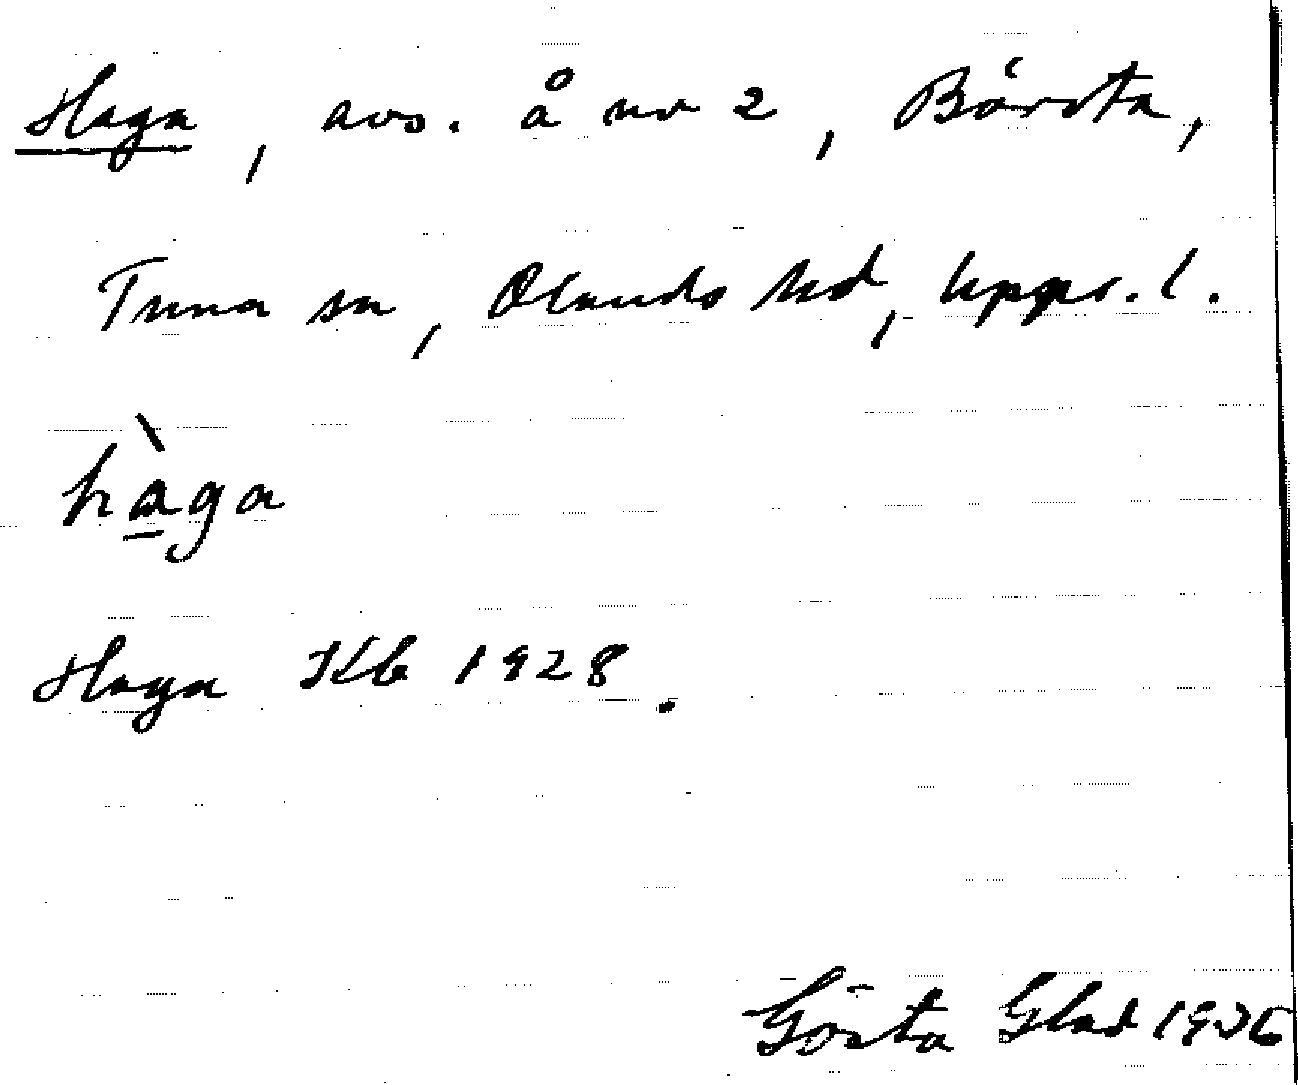 Haga, avs. å nr 2, Börsta,
Tuna sn, Olands hd, Upps. l.
hàga
Haga Kb 1928.
Gösta Glad 1936